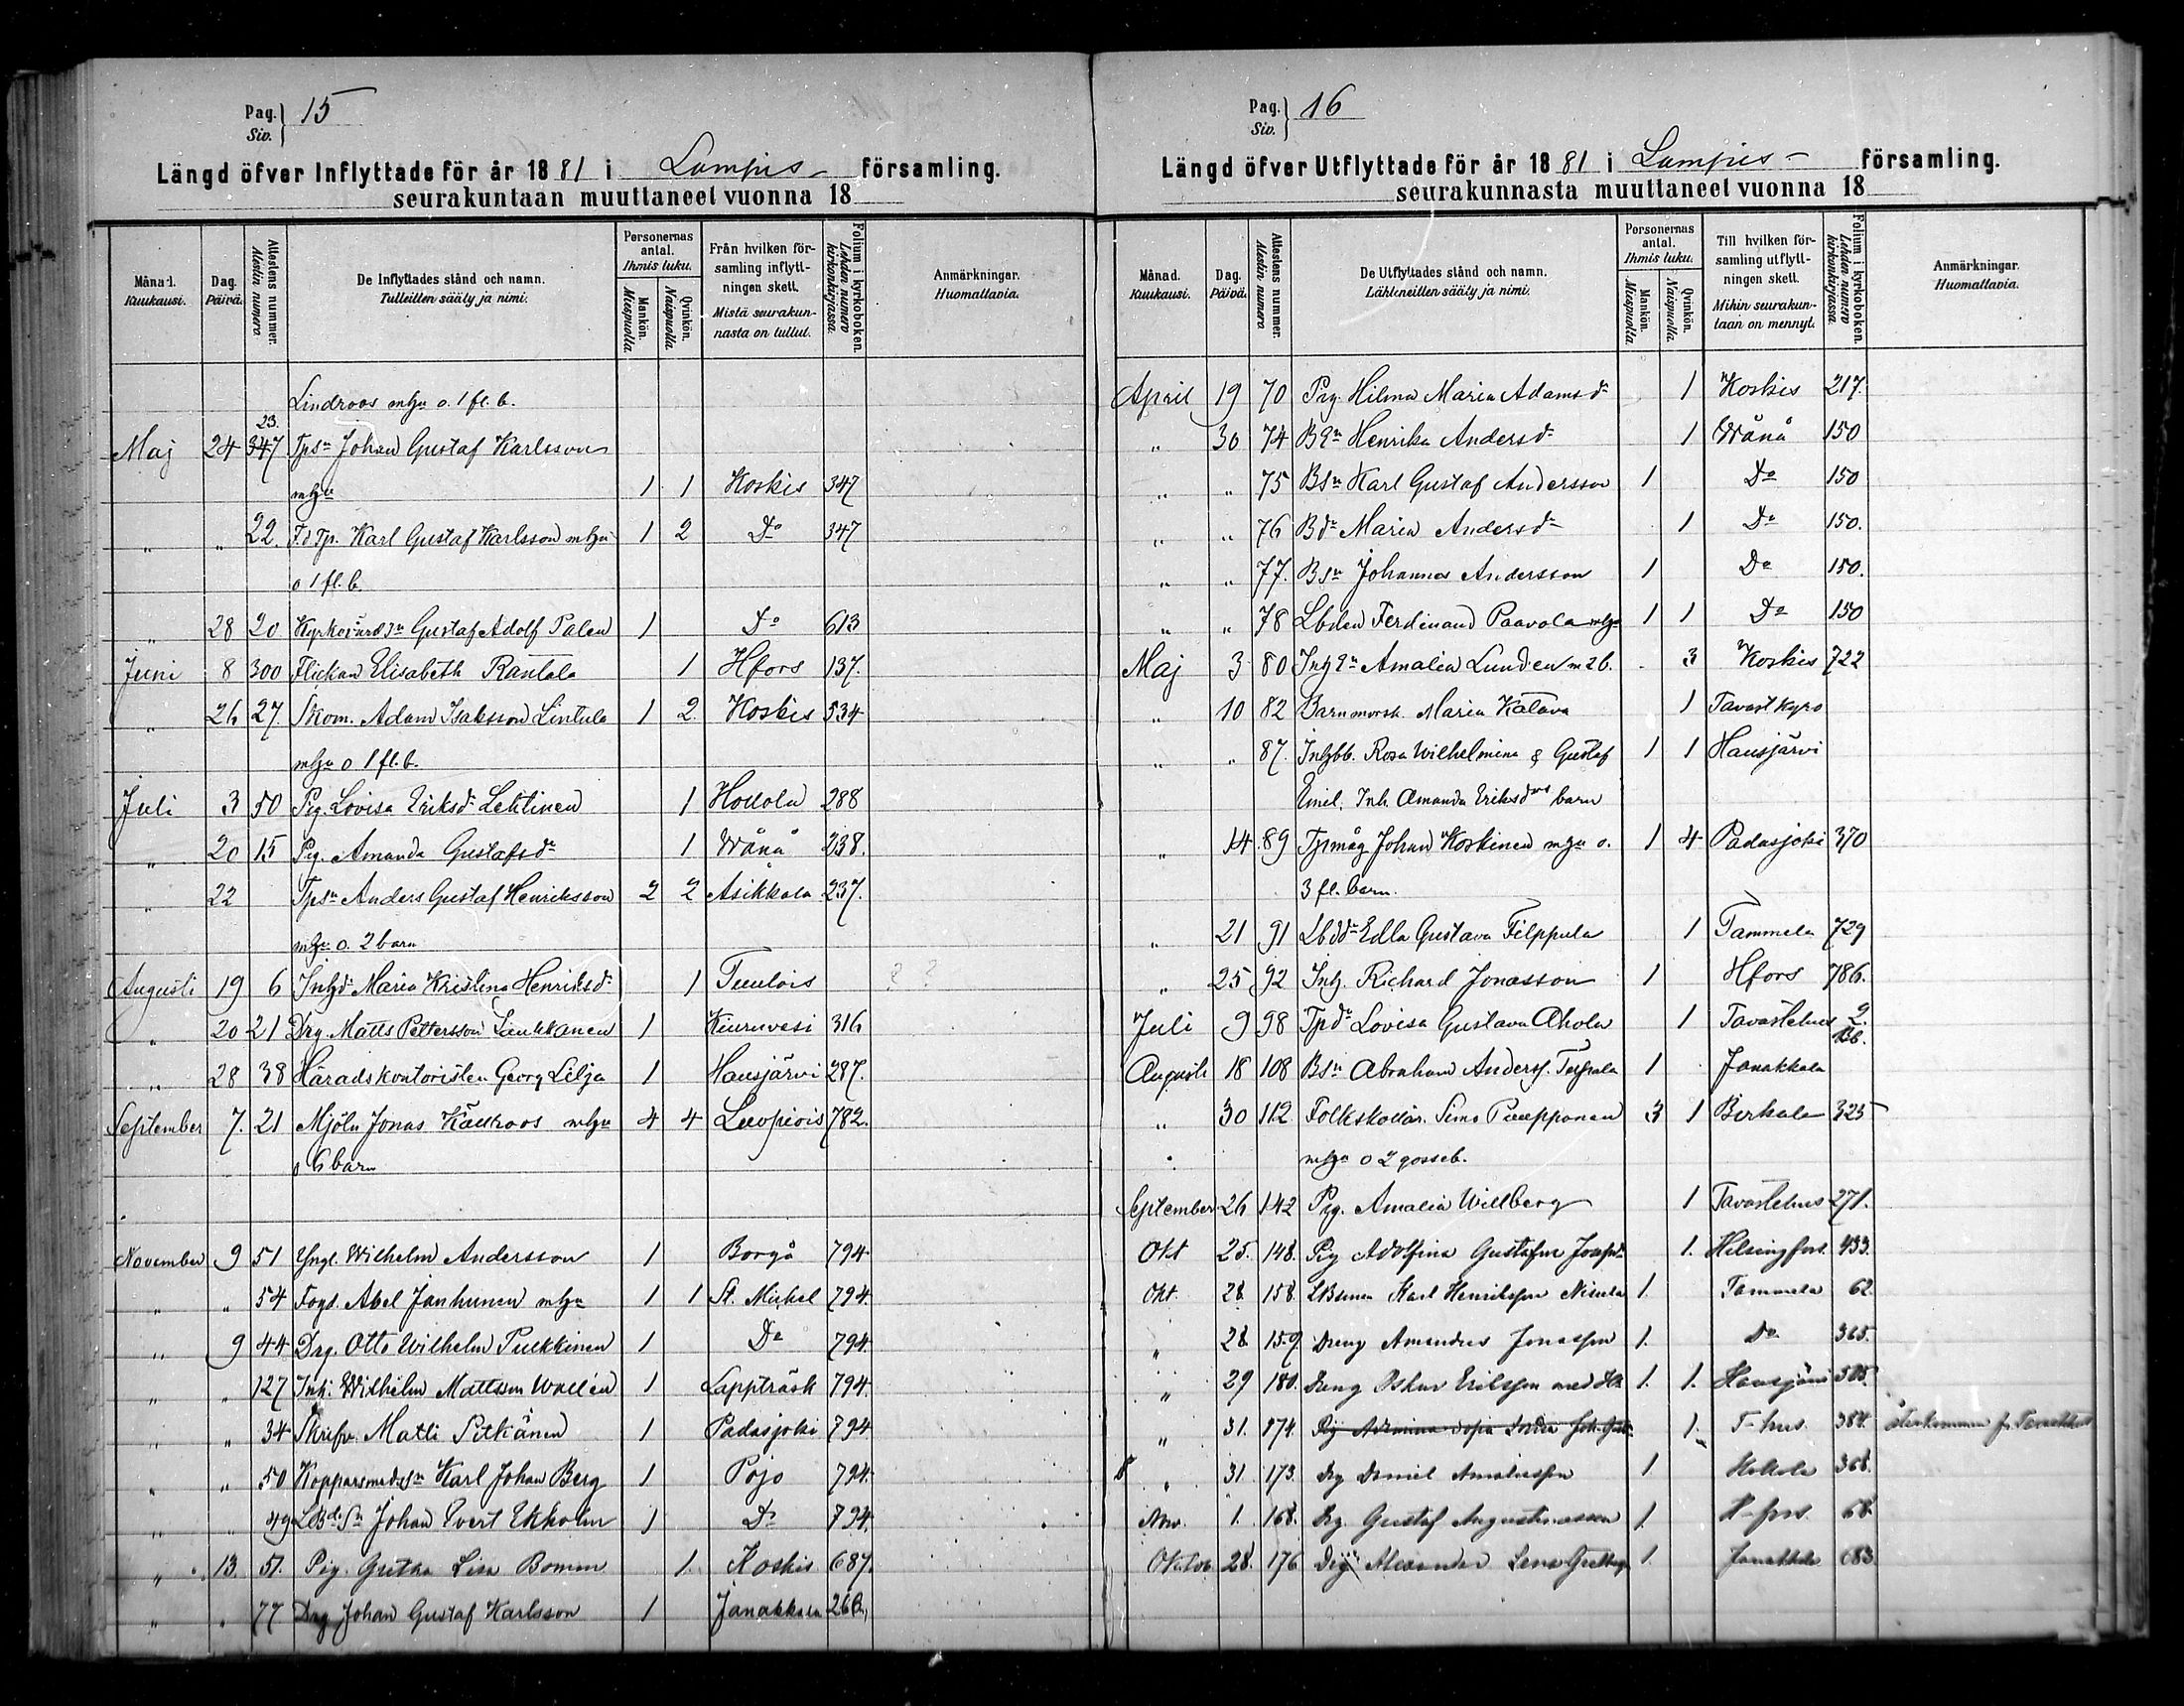 Pag. 15
Siv.
Längd öfver Inflyttade för år 1881 i Lampis församling.
seurakuntaan muuttaneet vuonna 18
Månad. Kuukausi.
Dag. Päivä.
Attestens nummer. Atestin numero
De Inflyttades stånd och namn. Tulleitten sääty ja nimi.
Personernas antal. Ihmis luku.
Mankön. Miespuolta
Qvinkön. Naispuolta.
Från hvilken församling inflyttningen skett. Mistä seurakunnasta on tullut.
Folium i kyrkoboken. Lehden numero kirkonkirjassa.
Anmärkningar. Huomattavia.
Lindroos mhu o. 1 fl. b.
23.
Maj 24 347 Tpsn Johan Gustaf Karlsson
mhu 1 1 Koskis 347
" " 22. F.d Tp. Karl Gustaf Karlsson mhu 1 2 Do 347
o 1 fl. b.
" 28 20 Kyrkovärdsn Gustaf Adolf Palen 1 Do 613
Juni 8 300 Flickan Elisabeth Rantala 1 Hfors 137.
" 26 27. Skom. Adam Isaksson Lintula 1 2 Koskis 534
mhu o 1 fl. b.
Juli 3 50 Pig. Lovisa Eriksdr Lehtinen 1 Hollola 288
" 20 15 Pig. Amanda Gustafsdr 1 Wånå 238.
" 22 Tpsn Anders Gustaf Henriksson 2 2 Asikkala 237.
mhu o. 2 barn
Augusti 19 6 Inhdr Maria Kristina Henriksdr 1 Tuulois ? ?
" 20 21 Drg. Matts Pettersson Laukkanen 1 Kiuruvesi 316
" 28 38 Häradskontoristen Georg Lilja 1 Hausjärvi 287.
September 7. 21 Mjöln Jonas Källroos mhu 4 4 Luopiois 782.
o 6 barn
November 9 51 Yngl. Wilhelm Andersson 1 Borgå 794
" " 54 Fogd. Abel Janhunen mhu 1 1 St. Mickel 794.
" 9 44 Drg. Otto Wilhelm Pulkkinen 1 Do 794.
" " 127 Inh. Wilhelm Mattsson Wallén 1 Lappträsk 794.
" " 34 Skrifv. Matti Pitkänen 1 Padasjoki 794.
" " 50 Kopparsmedssn Karl Johan Berg 1 Pojo 794.
" " 49 LBdsn Johan Evert Ekholm 1 Do 794.
" 13. 51. Pig. Gretha Lisa Bomm 1. Koskis 687.
" " 77 Drg Johan Gustaf Karlsson 1 Janakkala 266.
Pag. 16
Siv.
Längd öfver Utflyttade för år 1881 i Lampis församling.
seurakunnasta muuttaneet vuonna 18
Månad. Kuukausi.
Dag. Päivä.
Attestens nummer. Atestin numero
De Utflyttades stånd och namn. Lähteneitten sääty ja nimi.
Personernas antal. Ihmis luku.
Mankön. Miespuolta.
Qvinkön. Naispuolta.
Till hvilken församling utflyttningen skett. Mihin seurakuntaan on mennyt.
Folium i kyrkoboken. Lehden numero kirkonkirjassa.
Anmärkningar. Huomattavia.
April 19 70 Pig. Hilma Maria Adamsdr 1 Koskis 217.
" 30 74 Henrika Andersdr 1 Wånå 150
" " 75 Bsn Karl Gustaf Andersson 1 Do 150
" " 76 Bdr Maria Andersdr 1 Do 150.
" " 77. Bsn Johannes Andersson 1 Do 150.
" " 78 Lbden Ferdinand Paavola mhu 1 1 Do 150
Maj 3 80 Amalia Lunden m 2 b. 3 Koskis 722
" 10 82 Barnmorsk. Maria Katava 1 Tavastkyro
" " 87. Inhbb. Rosa Wilhelmina & Gustaf 1 1 Hausjärvi
Emil, Inh. Amanda Eriksdrs barn
" 14 89 Tpmåg Johan Koskinen mhu o. 1 4 Padasjoki 370
3 fl. barn.
" 21 91 Lbddr Edla Gustava Filppula 1 Tammela 729
" 25 92 Inh. Richard Jonasson 1 Hfors 786.
Juli 9 98 Tpdr Lovisa Gustava Ahola 1 Tavastehus 2.
Augusti 18 108 Bsn Abraham Anderss. 1 Janakkala
" 30 112 Folkskollär. Simo Puupponen 3 1 Birkala 325
" mhu o 2 gosseb.
September 26 142 Pig. Amalia Willberg 1 Tavastehus 271.
Okt 25. 148. Pig Adolfina Gustafva Josefsdr 1. Helsingfors. 433.
Okt. 28 158. Karl Henriksson Nisula 1. Tammela 62.
" 28. 159. Dreng Amandus Jonasson 1. Do 365.
" 29 180. Dreng Oskar Eriksson med 1. 1. Hausjärvi 505.
" 31. 174. Pig 1. T-hus. 384.
" 31 173. Drg Daniel 1 Hollola 368.
Nov. 1. 168. Drg. Gustaf Augustinsson 1. H-fors. 68
Oktob 28. 176 Alexander 1. Janakkala 683